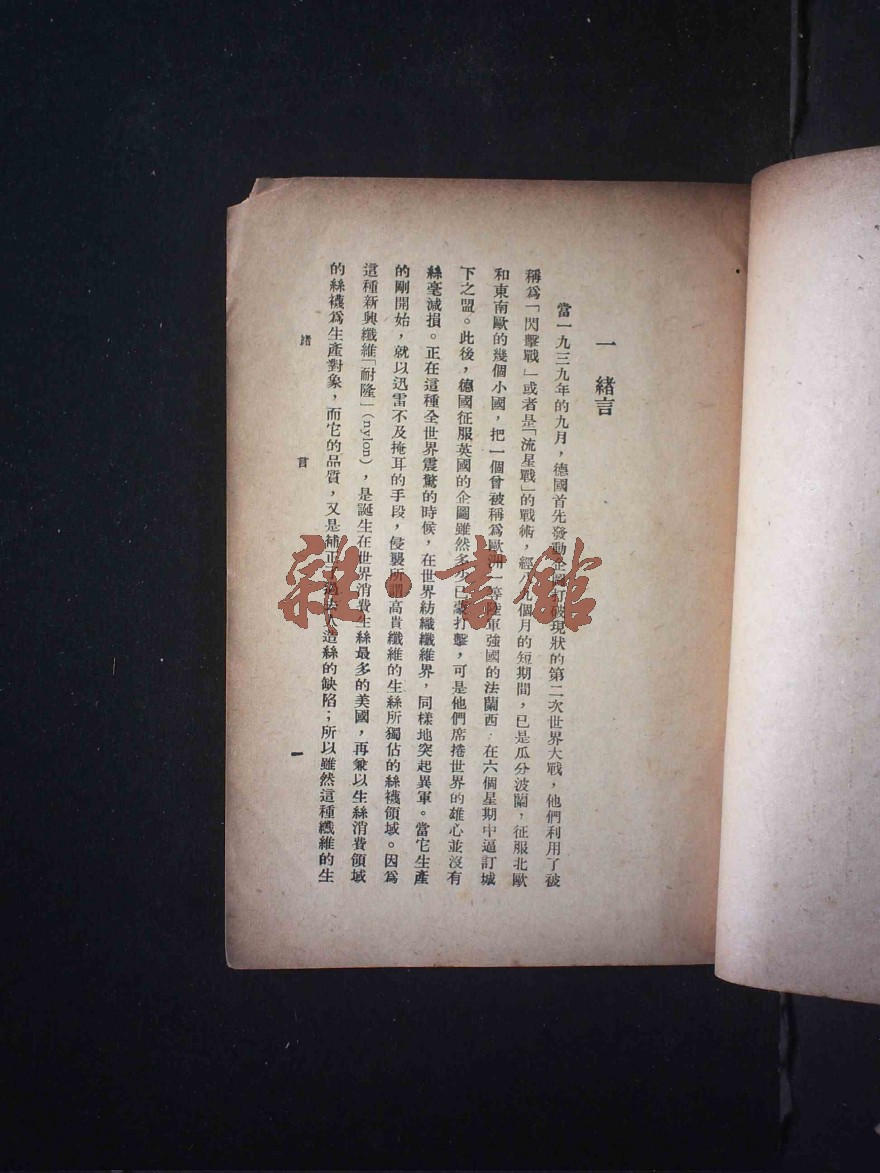 一 緒言
當一九三九年的九月，德國首先發動企圖打破現狀的第二次世界大戰，他們利用了被
稱爲「閃擊戰」或者是「流星戰」的戰術，經八九個月的短期間，已是瓜分波蘭，征服北歐
和東南歐的幾個小國，把一個曾被稱爲歐洲一等陸軍強國的法蘭西．在六個星期中逼訂城
下之盟。此後，德國征服英國的企圖雖然多少已蒙打擊，可是他們席捲世界的雄心並沒有
絲毫減損。正在這種全世界震驚的時候，在世界紡織纖維界，同樣地突起異軍。當它生產
的剛開始，就以迅雷不及掩耳的手段，侵襲所謂高貴纖維的生絲所獨佔的絲襪領域。因爲
這種新興纖維「耐隆」(nylon)，是誕生在世界消費生絲最多的美國，再兼以生絲消費領域
的絲襪爲生產對象，而它的品質，又是補正了過去人造絲的缺陷；所以雖然這種纖維的生
緒言
一
雜·書館